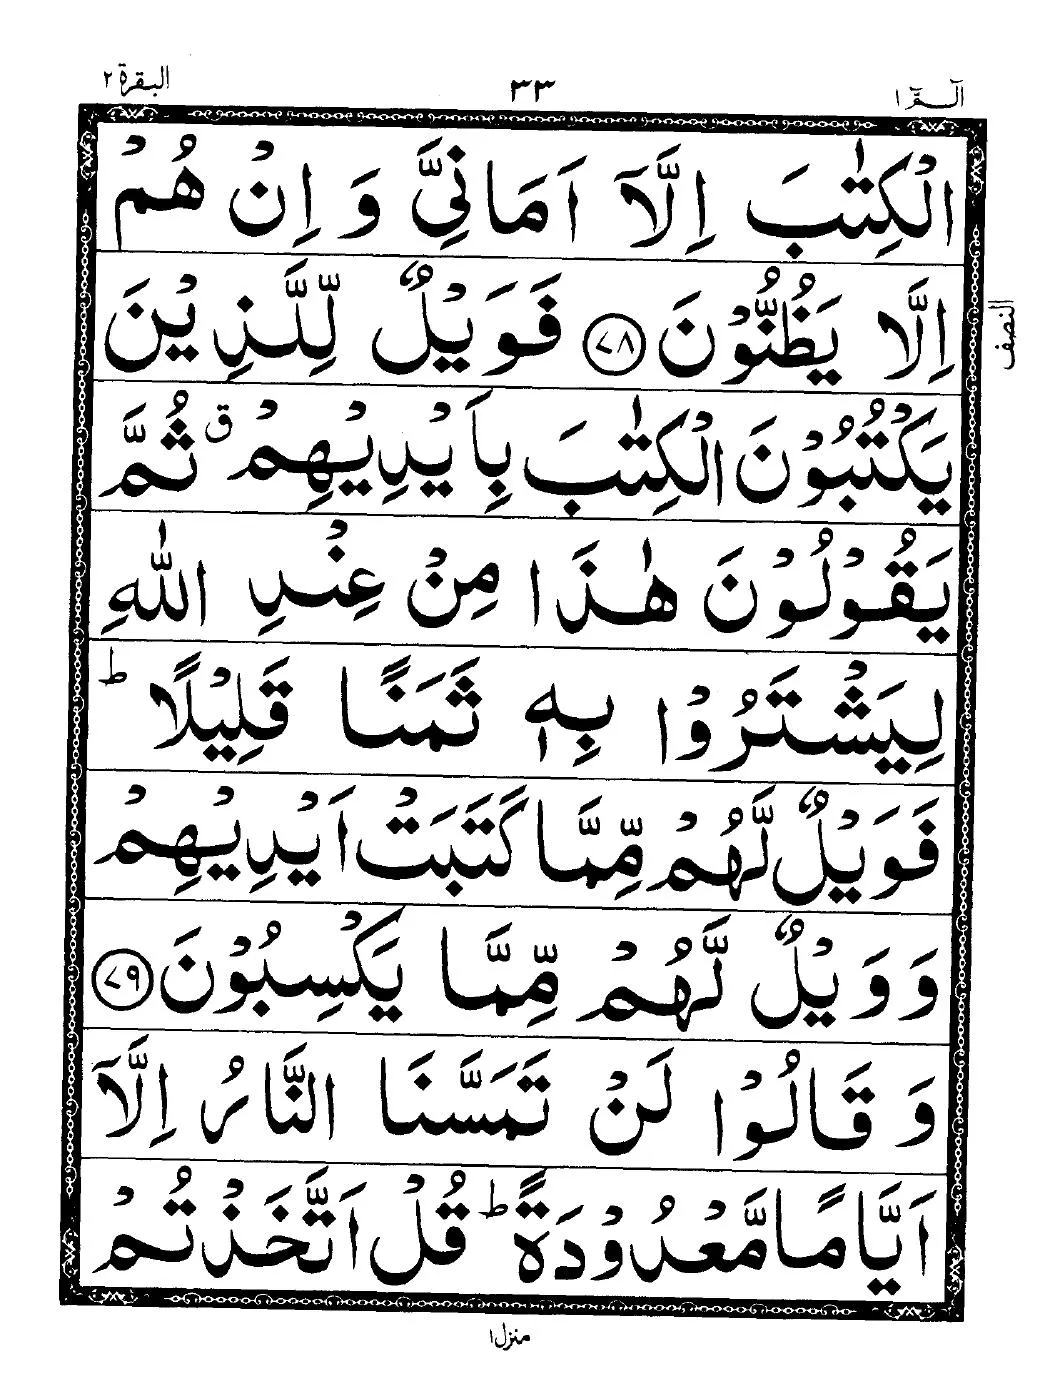 الٓمّٓ ١
٣٣
البقرة ٢
الْكِتٰبَ اِلَّاۤ اَمَانِيَّ وَ اِنْ هُمْ
اِلَّا يَظُنُّوْنَ ﴿٧٨﴾ فَوَيْلٌ لِّلَّذِيْنَ
النصف
يَكْتُبُوْنَ الْكِتٰبَ بِاَيْدِيْهِمْ ۗ ق ثُمَّ
يَقُوْلُوْنَ هٰذَا مِنْ عِنْدِ اللّٰهِ
لِيَشْتَرُوْا بِهٖ ثَمَنًا قَلِيْلًا ؕ
فَوَيْلٌ لَّهُمْ مِّمَّا كَتَبَتْ اَيْدِيْهِمْ
وَ وَيْلٌ لَّهُمْ مِّمَّا يَكْسِبُوْنَ ﴿٧٩﴾
وَ قَالُوْا لَنْ تَمَسَّنَا النَّارُ اِلَّاۤ
اَيَّامًا مَّعْدُوْدَةً ؕ قُلْ اَتَّخَذْتُمْ
منزل ١